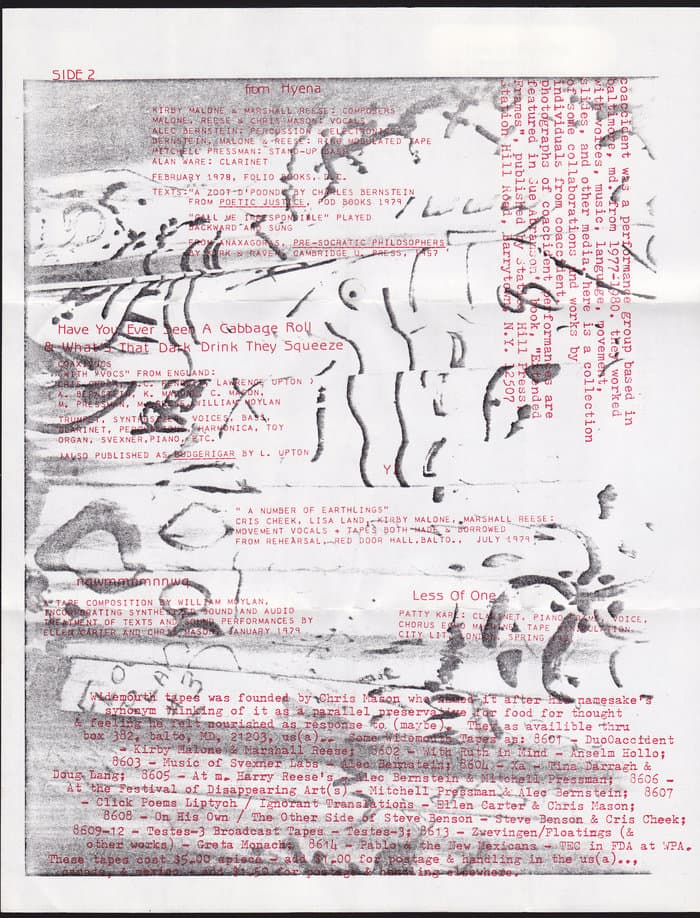 SIDE 2
from Hyena
KIRBY MALONE & MARSHALL REESE: COMPOSERS
MALONE, REESE & CHRIS MASON: VOCALS
ALEC BERNSTEIN: PERCUSSION & ELECTRONICS
BERNSTEIN, MALONE & REESE: RING MODULATED TAPE
MITCHELL PRESSMAN: STAND-UP BASS
ALAN WARE: CLARINET
FEBRUARY 1978, FOLIO BOOKS, D.C.
TEXTS: "A ZOOT D'POOND" BY CHARLES BERNSTEIN
FROM POETIC JUSTICE, POD BOOKS 1979
"CALL ME IRRESPONSIBLE" PLAYED
BACKWARD AND SUNG
FROM ANAXAGORAS, PRE-SOCRATIC PHILOSOPHERS
BY KIRK & RAVEN, CAMBRIDGE U. PRESS, 1957
coaccident was a performance group based in
baltimore, md. from 1977-1980. they worked
with voices, music, language, movement,
slides, and other media. here is a collection
of some collaborations and works by
individuals from coaccident.
photographs of coaccident performances are
featured in Sue Abramson's book, "Extended
Frames," published by Station Hill Press,
Station Hill Road, Barrytown, N.Y. 12507
Have You Ever Seen A Cabbage Roll
& What's That Dark Drink They Squeeze
COAXIINGS
(WITH "VOCS" FROM ENGLAND:
CRIS CHEEK, C. LAWRENCE UPTON)
A. BERNSTEIN, K. MALONE, C. MASON,
M. PRESSMAN, M. REESE, WILLIAM MOYLAN
TRUMPET, SYNTHESIZER, VOICES, BASS,
CLARINET, PERCUSSION, HARMONICA, TOY
ORGAN, SVEXNER, PIANO, ETC.
(ALSO PUBLISHED AS BUDGERIGAR BY L. UPTON)
" A NUMBER OF EARTHLINGS"
CRIS CHEEK, LISA LAND, KIRBY MALONE, MARSHALL REESE:
MOVEMENT VOCALS + TAPES BOTH MADE & BORROWED
FROM REHEARSAL, RED DOOR HALL, BALTO., JULY 1979
nqwmmmmnnwq
A TAPE COMPOSITION BY WILLIAM MOYLAN,
INCORPORATING SYNTHESIZED SOUND AND AUDIO
TREATMENT OF TEXTS AND SOUND PERFORMANCES BY
ELLEN CARTER AND CHRIS MASON, JANUARY 1979
Less Of One
PATTY KARL: CLARINET, PIANO FRAME, VOICE,
CHORUS ECHO MACHINE, TAPE MANIPULATION.
CITY LIT, LONDON, SPRING
Widemouth tapes was founded by Chris Mason who named it after his namesake's
synonym thinking of it as a parallel preservation for food for thought
& feeling he felt nourished as response to (maybe). They as availible thru
box 382, balto, MD, 21203, us(a).. Some Widemouth Tapes as: 8601 - DuoCaccident
- Kirby Malone & Marshall Reese; 8602 - With Ruth in Mind - Anselm Hollo;
8603 - Music of Svexner Labs - Alec Bernstein; 8604 - Xa - Tina Darragh &
Doug Lang; 8605 - At m. Harry Reese's - Alec Bernstein & Mitchell Pressman; 8606 -
At the Festival of Disappearing Art(s) - Mitchell Pressman & Alec Bernstein; 8607
- Click Poems Liptych / Ignorant Translations - Ellen Carter & Chris Mason;
8608 - On His Own / The Other Side of Steve Benson - Steve Benson & Cris Cheek;
8609-12 - Testes-3 Broadcast Tapes - Testes-3; 8613 - Zwevingen/Floatings (&
other works) - Greta Monach; 8614 - Pablo & the New Mexicans - TEC in FDA at WPA.
These tapes cost $5.00 apiece - add $1.00 for postage & handling in the us(a)..,
canada, & mexico. add $1.50 for postage & handling elsewhere.